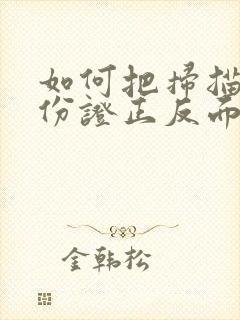 如何把掃描
份證正反面
金韩松